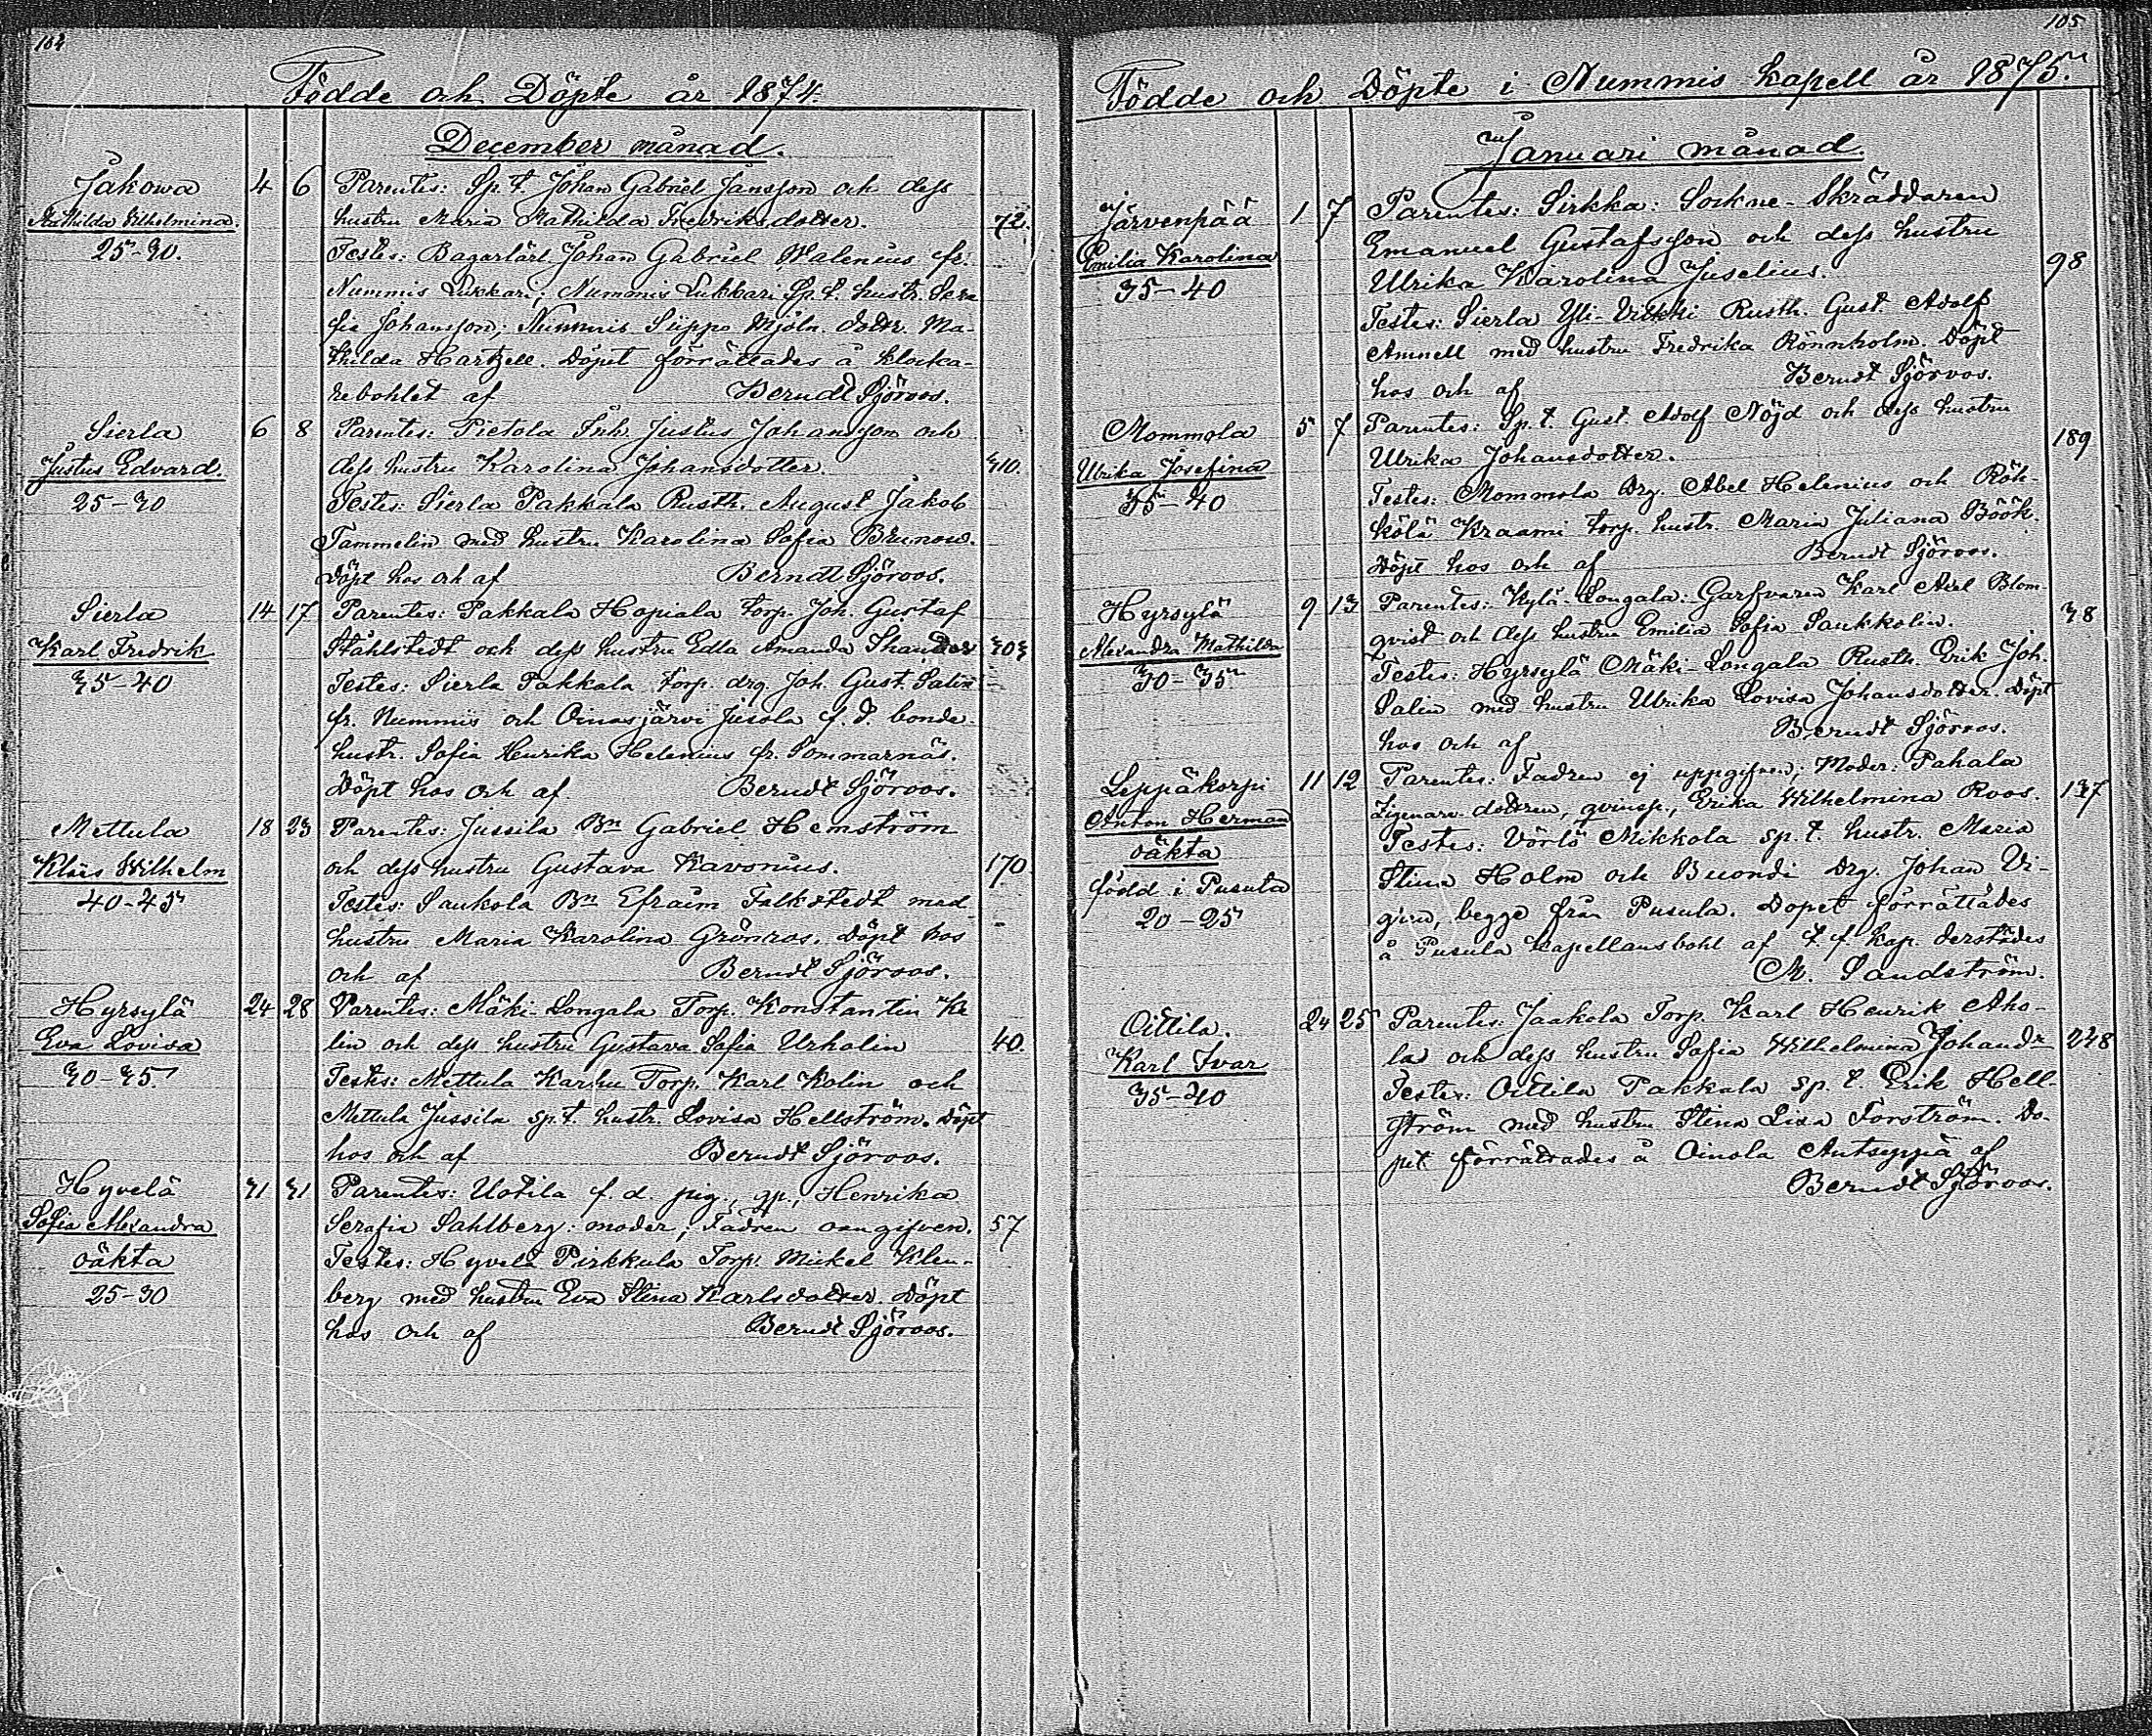 104
Födde och Döpte år 1874.
December månad.
Jakowa 4 6 Parentes: Sp. t. Johan Gabriel Jansson och dess
Mathilda Wilhelmina. hustru Maria Mathilda Fredriksdotter. 72.
25-30. Testes: Bagarlärl. Johan Gabriel Walenius fr.
Nummis Lukkari; Nummis Lukkari Sp. t. hustr. Sera
fia Johansson; Nummis Siippo Mjöln. dottr. Ma-
thilda Hartzell. Döpet förrättades å klocka-
rebohlet af Berndt Sjöroos.
Sierla 6 8 Parentes: Pietola Inh. Justus Johansson och
Justus Edvard. dess hustru Karolina Johansdotter. 310.
25-30 Testes: Sierla Pakkala Rusth. August Jakob
Tammelin med hustru Karolina Sofia Brunow.
Döpt hos och af Berndt Sjöroos.
Sierla 14 17 Parentes: Pakkala Hopiala torp. Joh. Gustaf
Karl Fredrik Ståhlstedt och dess hustru Edla Amanda 303
35-40 Testes: Sierla Pakkala torp. drg. Joh. Gust. Satin
fr. Nummis och Oinasjärvi Jusola f. d. bonde
hustr. Sofia Henrika Helenius fr. Sommarnäs.
Döpt hos och af Berndt Sjöroos.
Mettula 18 23 Parentes: Jussila Bn Gabriel Hemström
Kläes Wilhelm och dess hustru Gustava Kavonius. 170
40-45 Testes: Saukola Bn Efraim Falkstedt med
hustru Maria Karolina Grönroos. Döpt hos
och af Berndt Sjöroos.
Hyrsylä 24 28 Parentes: Mäki-Longala Torp. Konstantin Ke
Eva Lovisa lin och dess hustru Gustava Sofia Urholin 40.
30-35. Testes: Mettula Karhu Torp. Karl Kolin och
Mettula Jussila sp. t. hustr. Lovisa Hellström. Döpt
hos och af Berndt Sjöroos.
Hyvelä 31 31 Parentes: Uotila f. d. pig., qp., Henrika
Sofia Alexandra Serafia Sahlberg: moder; Fadren oangifven. 57
oäkta Testes: Hyvelä Pirkkula Torp. Mickel Klen-
25-30 berg med hustru Eva Stina Karlsdotter. Döpt
hos och af Berndt Sjöroos.
105
Födde och Döpte i Nummis kapell år 1875.
Januari månad.
Järvenpää 1 7 Parentes: Sirkka: Sockne-Skräddaren
Emilia Karolina Emanuel Gustafsson och dess hustru
35-40 Ulrika Karolina Juselius. 98
Testes: Sierla Yli-Vikki Rusth. Gust. Adolf
Amnell med hustru Fredrika Rönnholm. Döpt
hos och af Berndt Sjöroos.
Mommola 5 7 Parentes: Sp. t. Gust. Adolf Nöjd och dess hustru
Ulrika Josefina Ulrika Johansdotter. 189
35-40 Testes: Mommola drg. Abel Helenius och Röh-
kölä Kraami torp. hustr. Maria Juliana Böök.
Döpt hos och af Berndt Sjöroos.
Hyrsylä 9 13 Parentes: Kylä-Longala: Garfvaren Karl Axel Blom-
Alexandra Mathilda qvist och dess hustru Emilia Sofia Saukkolin. 38
30-35 Testes: Hyrsylä Mäki-Longala Rusth. Erik Joh.
Salin med hustru Ulrika Lovisa Johansdotter. Döpt
hos och af Berndt Sjöroos.
Leppäkorpi 11 12 Parentes: Fadren ej uppgifven; Moder: Pahala
Anton Herman Zigenare-dottren, qvinsp., Erika Wilhelmina Roos. 137
oäkta Testes: Vörlö Mikkola sp. t. hustr. Maria
född i Pusula Stina Holm och Buondi Drg. Johan Vi-
20-25 gren, begge från Pusula. Dopet förrättades
å Pusula kapellansbohl af t. f. kap. derstädes
M. Sandström.
Oittila. 24 25 Parentes: Jaakola Torp. Karl Henrik Aho-
Karl Ivar la och dess hustru Sofia Wilhelmina Johansdr 248
35-40 Testes: Oittila Pakkala sp. t. Erik Hell-
ström med hustru Stina Lisa Forström. Do-
pet förrättades å Oinola Antseppä af
Berndt Sjöroos.